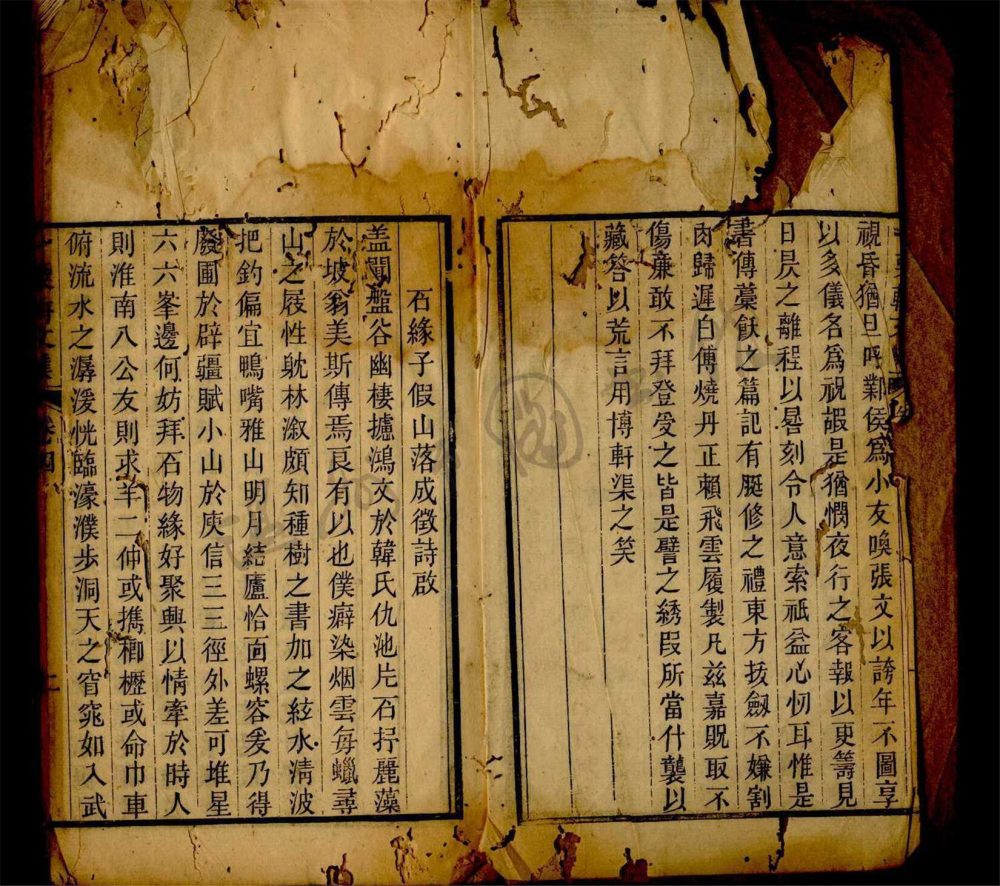 視昏猶旦呼鄴侯爲小友喚張文以誇年不圖享
以多儀名爲祝嘏是猶憫夜行之客報以更籌見
日昃之離程以晷刻令人意索祗益心忉耳惟是
書傳藁飫之篇記有脡修之禮東方拔劔不嫌割
肉歸遲白傅燒丹正賴飛雲履製凡兹嘉貺取不
傷廉敢不拜登受之皆是譬之綉段所當什襲以
藏答以荒言用博軒渠之笑
石緣子假山落成徵詩啟
盖聞盤谷幽棲攄鴻文於韓氏仇池片石抒麗藻
於坡翁美斯傳焉良有以也僕癖染烟雲每蠟尋
山之屐性躭林溆頗知種樹之書加之紋水清波
把釣偏宜鴨嘴雅山明月結廬恰面螺容爰乃得
廢圃於辟疆賦小山於庾信三三徑外差可堆星
六六峯邊何妨拜石物緣好聚興以情牽於時人
則淮南八公友則求羊二仲或携榼或命巾車
俯流水之潺湲恍臨濠濮步洞天之窅窕如入武
文集
卷四